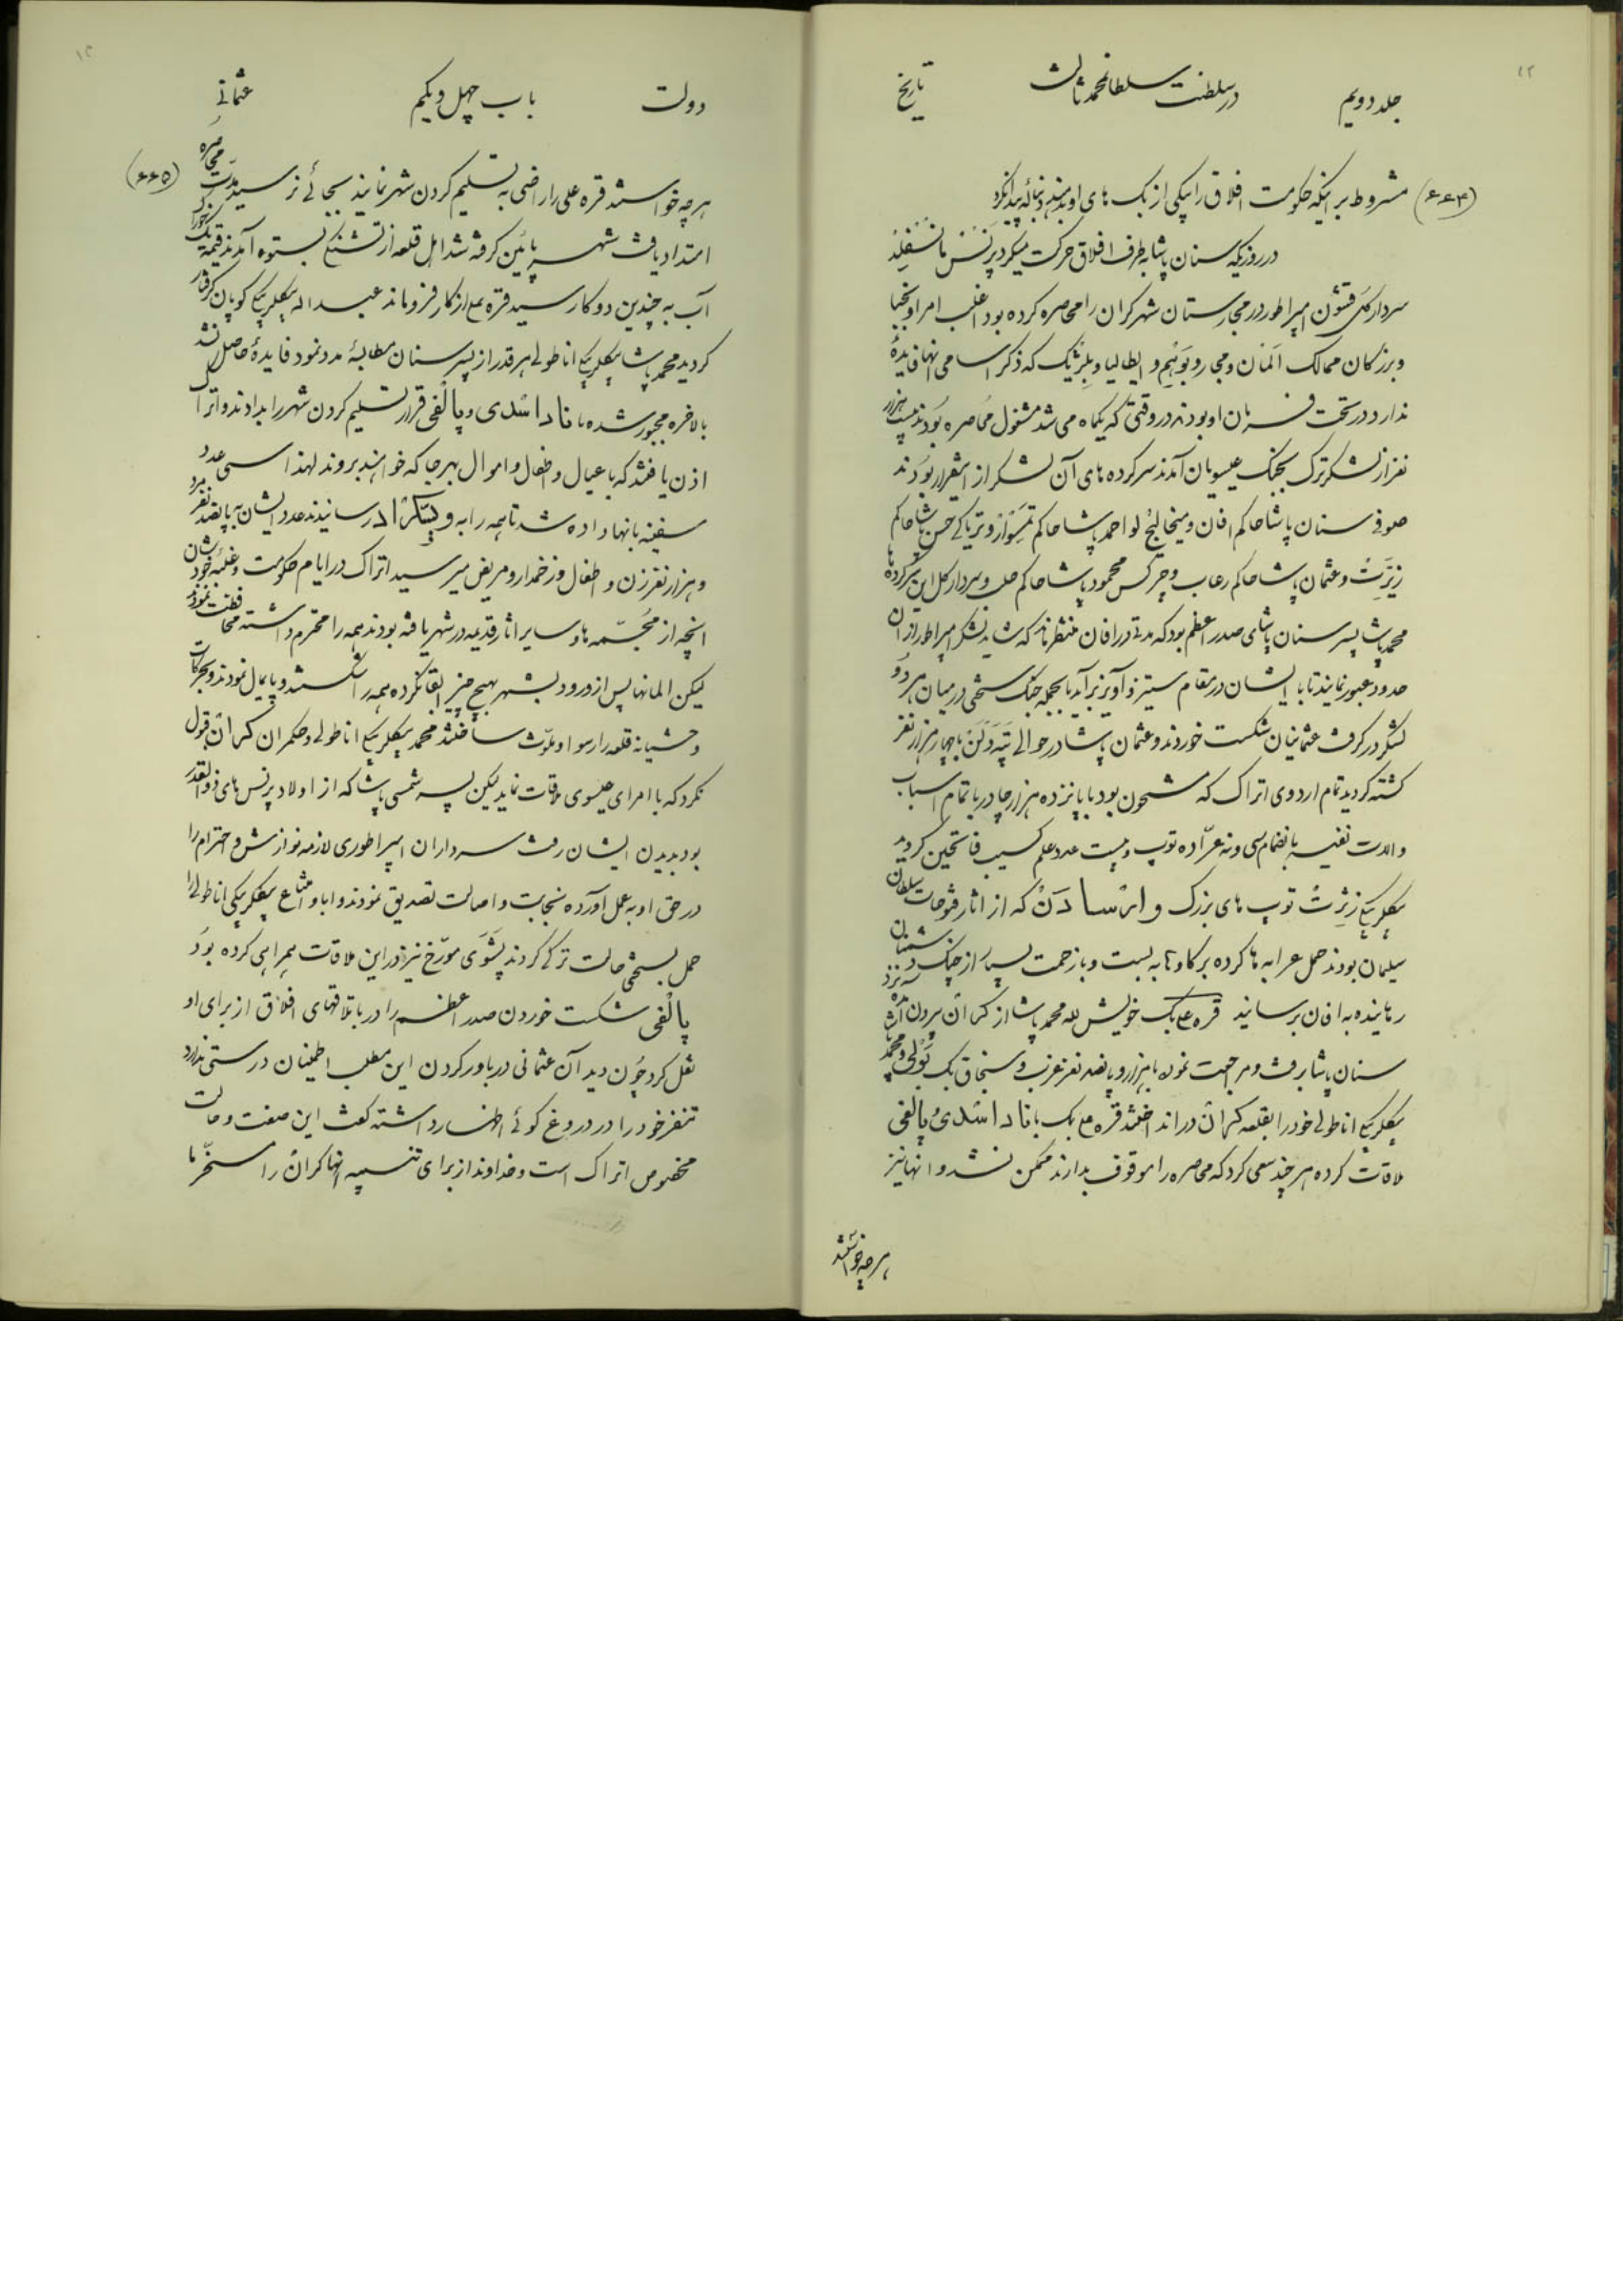 جلد دویم
در سلطنت سلطانمحمد ثالث
تاریخ
(۶۶۴)
مشروط بر اینکه حکومت افلاق را بیکی از بک های او بدهند دنباله پیدا نکرد
در روزیکه سنان پاشا بطرف افلاق حرکت میکرد پرنس مانسفلد
سردار کل قشون امپراطور در مجارستان شهر کران را محاصره کرده بود اغلب امرا و نجبا
و بزرکان ممالک المان و مجار و بوهیم و ایطالیا و بلژیک که ذکر اسامی انها فایدهٔ
ندارد در تحت فرمان او بودند در وقتی که یکماه می شد مشغول محاصره بودند بیست هزار
نفر از لشکر ترک بجنک عیسویان آمدند سرکرده های آن لشکر از اینقرار بودند
صوفی سنان پاشا حاکم افان و میخالیج لو احمد پاشا حاکم تمسوار و تریاکی حسن پاشا حاکم
زیزت و عثمان پاشا حاکم رعاب و چرکس محمود پاشا حاکم حلب و سردار کل این سرکرده ها
محمد پاشا پسر سنان پاشای صدر اعظم بود که مدتی در افان منتظر ماند که شاید لشکر امپراطور از ان
حدود عبور نمایند تا با ایشان در مقام ستیز و آویز برآید بالجمله جنک سختی در میان هر دو
لشکر در کرفت عثمانیان شکست خوردند و عثمان پاشا در حوالی تپه دلن با چهار هزار نفر
کشته کردید تمام اردوی اتراک که مشحون بود با پانزده هزار چادر با تمام اسباب
و الات نفیسه بانضمام سی و نه عرّاده توپ و بیست عدد علم کسیب فاتحین کردید
بیکلربیکی زیزت توپ های بزرک و اتسادن که از اثار فتوحات سلطان
سلیمان بودند حمل عرابه ها کرده بر کاوها به بست و با زحمت بسیار از چنک دشمنان
رهانیده به افان برسانید قره علی بک خویش لله محمد پاشا از کران بیرون آمده نزد
سنان پاشا برفت و مراجعت نموده با هزار و پانصد نفر عزب و سنجاق بک تولی و محمد پاشا
بیکلربیکی اناطولی خود را بقلعه کران در انداختند قره علی بک با ناداشدی و پالفی
ملاقات کرده هر چند سعی کرد که محاصره را موقوف بدارند ممکن نشد و انها نیز
هر چه خواستند
دولت
باب چهل و یکم
عثمانی
(۶۶۵)
هر چه خواستند قره علی را راضی به تسلیم کردن شهر نمایند بجائی نرسید مدّت محاصره
امتداد یافت شهر پائین کرفته شد اهل قلعه از تشنکی بستوه آمدند قیمت یک خوراک
آب به چندین دوکا رسید قره علی از کار فرو ماند عبداله بیکلربیکی کوپان کرفتار
کردید محمد پاشا بیکلربیکی اناطولی هر قدر از پسر سنان مطالبهٔ مدد نمود فایدهٔ حاصل نشد
بالاخره مجبور شده با ناداشدی و پالفی قرار تسلیم کردن شهر را بدادند و اتراک
اذن یافتند که با عیال و اطفال و اموال بهر جا که خواهند بروند لهذا سی عدد
سفینه بانها داده شد تا همه را به ویسکراد رسانیدند عدد ایشان به پانصد نفر مرد
و هزار نفر زن و اطفال و زخمدار و مریض میرسید اتراک در ایام حکومت و غلبه خودشان
انچه از مجسّمه ها و سایر اثار قدیمه در شهر یافته بودند همه را محترم داشته محافظت نمودند
لیکن المانها پس از ورود بشهر بهیچ چیز ابقا نکرده همه را شکستند و پایمال نمودند و بحرکات
وحشیانه قلعه را رسوا و ملوّث ساختند محمد بیکلربیکی اناطولی و حکمران کران قبول
نکرد که با امرای عیسوی ملاقات نماید لیکن پسر شمسی پاشا که از اولاد پرنس های ذوالقدر
بود بدیدن ایشان رفت سرداران امپراطوری لازمه نوازش و احترام را
در حق او به عمل آورده نجابت و اصالت تصدیق نمودند و ابا و امتناع بیکلربیکی اناطولی را
حمل بسختی حالت ترکی کردند پشوی مورّخ نیز در این ملاقات همراهی کرده بود
پالفی شکست خوردن صدر اعظم را در باتلاقهای افلاق از برای او
نقل کرد چون دید آن عثمانی در باور کردن این مطلب اطمینان درستی ندارد
تنفر خود را در دروغ کوئی اظهار داشته کفت این صفت و حالت
مخصوص اتراک است و خداوند از برای تنبیه انها کران را مسخّر ما